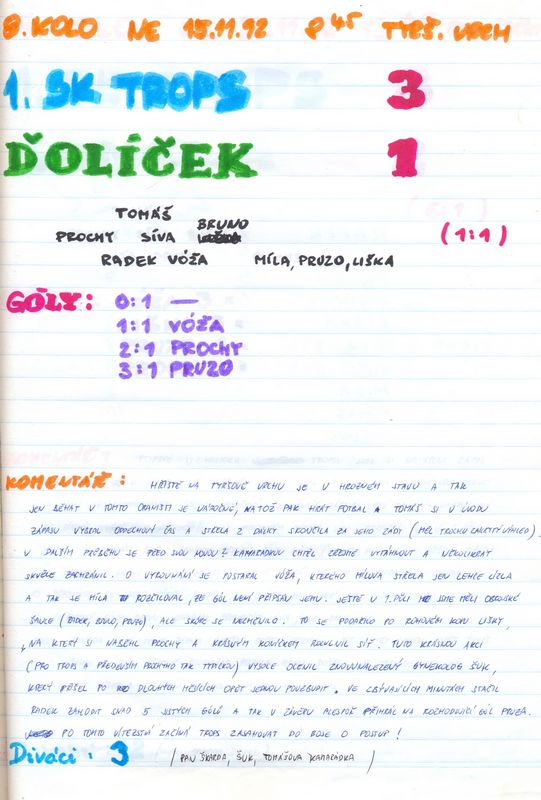 8. KOLO NE 15.11.92 8 45 TYRŠ. VRCH
1. SK TROPS 3
ĎOLÍČEK 1
TOMÁŠ
PROCHY SÍVA BRUNO
(1:1)
RADEK VÓŽA MÍLA, PRUZO, LIŠKA
GÓLY: 0:1 —
1:1 VÓŽA
2:1 PROCHY
3:1 PRUZO
KOMENTÁŘ: HŘIŠTĚ NA TYRŠOVĚ VRCHU JE V HROZNÉM STAVU A TAK
JEN BĚHAT V TOMTO ORANIŠTI JE NÁROČNÉ, NATOŽ PAK HRÁT FOTBAL A TOMÁŠ SI V ÚVODU
ZÁPASU VYBRAL ODDECHOVÝ ČAS A STŘELA Z DÁLKY SKONČILA ZA JEHO ZÁDY (MĚL TROCHU ZAKRYTÝ VÝHLED).
V DALŠÍM PRŮBĚHU SE PŘED SVOU NOVOU? KAMARÁDKOU CHTĚL ZŘEJMĚ VYTÁHNOUT A NĚKOLIKRÁT
SKVĚLE ZACHRÁNIL. O VYROVNÁNÍ SE POSTARAL VÓŽA, KTERÉHO MÍLOVA STŘELA JEN LEHCE LÍZLA
A TAK SE MÍLA ROZČILOVAL, ŽE GÓL NENÍ PŘIPSÁN JEMU. JEŠTĚ V 1. PŮLI JSME MĚLI OBROVSKÉ
ŠANCE (RADEK, BRUNO, PRUZO), ALE SKÓRE SE NEZMĚNILO. TO SE PODAŘILO PO ROHOVÉM KOPU LIŠKY,
NA KTERÝ SI NABĚHL PROCHY A KRÁSNÝM KONÍČKEM ROZVLNIL SÍŤ. TUTO KRÁSNOU AKCI
(PRO TROPS A PŘEDEVŠÍM PROCHYHO TAK TYPICKOU) VYSOCE OCENIL ZNOVUNALEZENÝ GYNEKOLOG ŠUK,
KTERÝ PŘIŠEL PO DLOUHÝCH MĚSÍCÍCH OPĚT JEDNOU POVZBUDIT. VE ZBÝVAJÍCÍCH MINUTÁCH STAČIL
RADEK ZAHODIT SNAD 5 JISTÝCH GÓLŮ A TAK V ZÁVĚRU ALESPOŇ PŘIHRÁL NA ROZHODUJÍCÍ GÓL PRUZA.
PO TOMTO VÍTĚZSTVÍ ZAČÍNÁ TROPS ZASAHOVAT DO BOJE O POSTUP!
Diváci: 3 (PAN ŠKARDA, ŠUK, TOMÁŠOVA KAMARÁDKA)